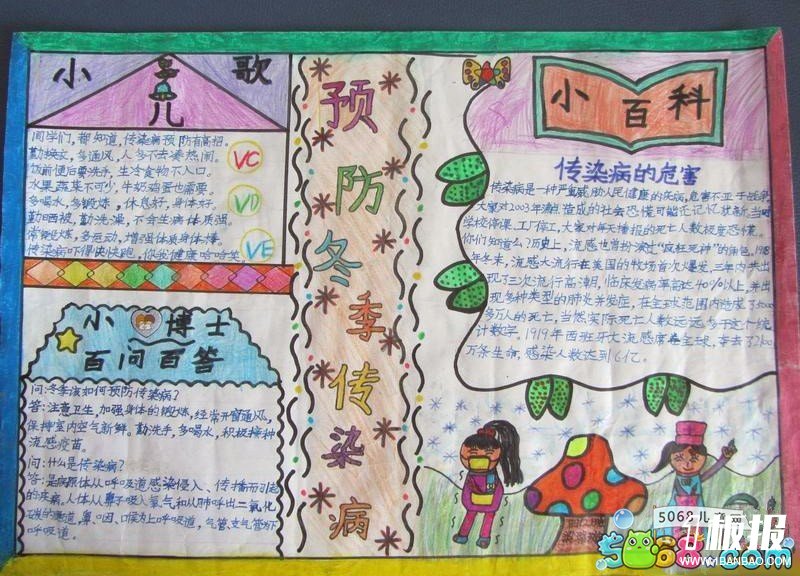 小儿歌
同学们，都知道，传染病预防有高招。
勤换衣，多通风，人多不去凑热闹。
饭前便后要洗手，生冷食物不入口。
水果蔬菜不可少，牛奶鸡蛋也需要。
多喝水，多锻炼，休息好，身体好。
勤晒被，勤洗澡，不会生病体质强。
常锻炼，多运动，增强体质身体棒。
传染病吓得快快跑，你我健康哈哈笑
VC
VD
VE
小博士
百问百答
问：冬季该如何预防传染病？
答：注意卫生，加强身体的锻炼，经常开窗通风，
保持室内空气新鲜。勤洗手，多喝水，积极接种
流感疫苗。
问：什么是传染病？
答：是病原体从呼吸道感染侵入、传播而引起
的疾病，人体从鼻不吸入氧气和从肺呼出二氧化
碳的通道，鼻、咽、喉为上呼吸道，气管、支气管为下
呼吸道。
预防冬季传染病
小百科
传染病的危害
传染病是一种严重威胁人民健康的疾病，危害不亚于战争，
大家对2003年造成的社会恐慌可能还记忆犹新，当时
学校停课、工厂停工，大家对每天播报的死亡人数极度恐慌。
你们知道么？历史上，流感也曾扮演过“疯狂死神”的角色。1918
年冬末，流感大流行在美国的牧场首次爆发，三年内共出
现了三次流行高潮，临床发病率高达40%以上，并出
现多种类型的肺炎并发症，在全球范围内造成
多万人的死亡，当然实际死亡人数远远多于这个统
计数字。1919年西班牙大流感席卷全球，夺去
万条生命，感染人数达到6亿。
5068儿童
5068.com
板报
WWW.1BANBAO.COM